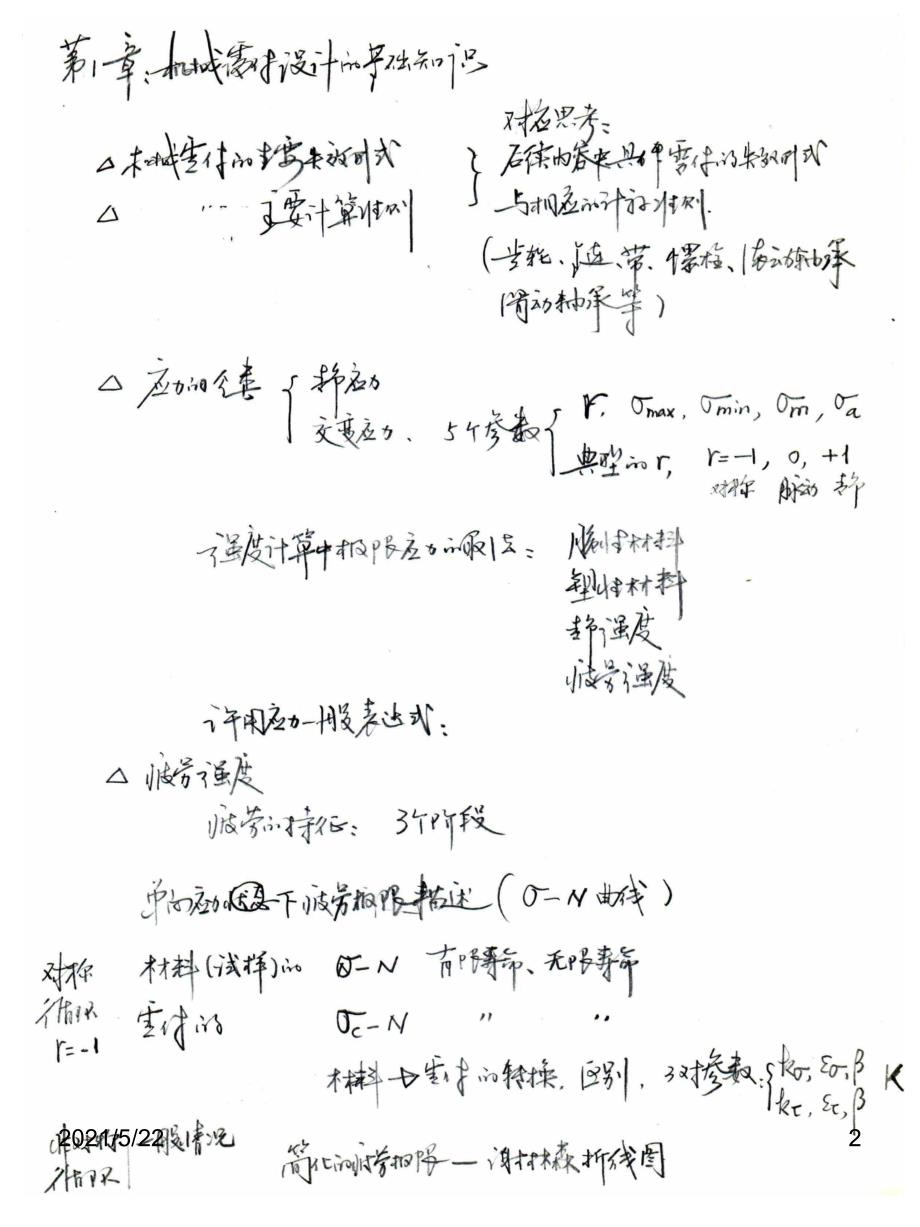 第1章：机械零件设计的基础知识
△ 机械零件的主要失效形式
△ 〃 主要计算准则
对应思考：
后续内容中具体零件的失效形式
与相应的计算准则.
(齿轮、链、带、螺栓、滚动轴承
滑动轴承等)
△ 应力的分类 { 静应力
交变应力、5个参数 { r, σmax, σmin, σm, σa
典型的r, r=-1, 0, +1
对称 脉动 静
强度计算中极限应力的取法：脆性材料
塑性材料
静强度
疲劳强度
许用应力一般表达式：
△ 疲劳强度
疲劳的特征： 3个阶段
单向应力状态下疲劳极限描述 (σ-N 曲线)
对称
循环
r=-1
材料(试样)的 σ-N 有限寿命、无限寿命
零件的 σc-N 〃 〃
材料→零件的转换, 区别, 3对参数: { kσ, εσ, β K
kτ, ετ, β
2021/5/22 一般情况
循环
简化的疲劳极限—谢林森折线图
2